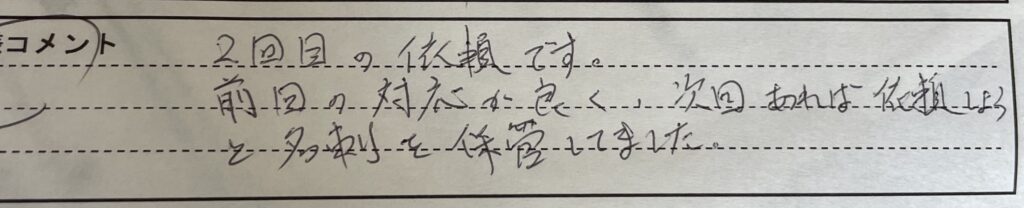 コメント
2回目の依頼です。
前回の対応が良く、次回あれば依頼しよう
と名刺を保管してました。